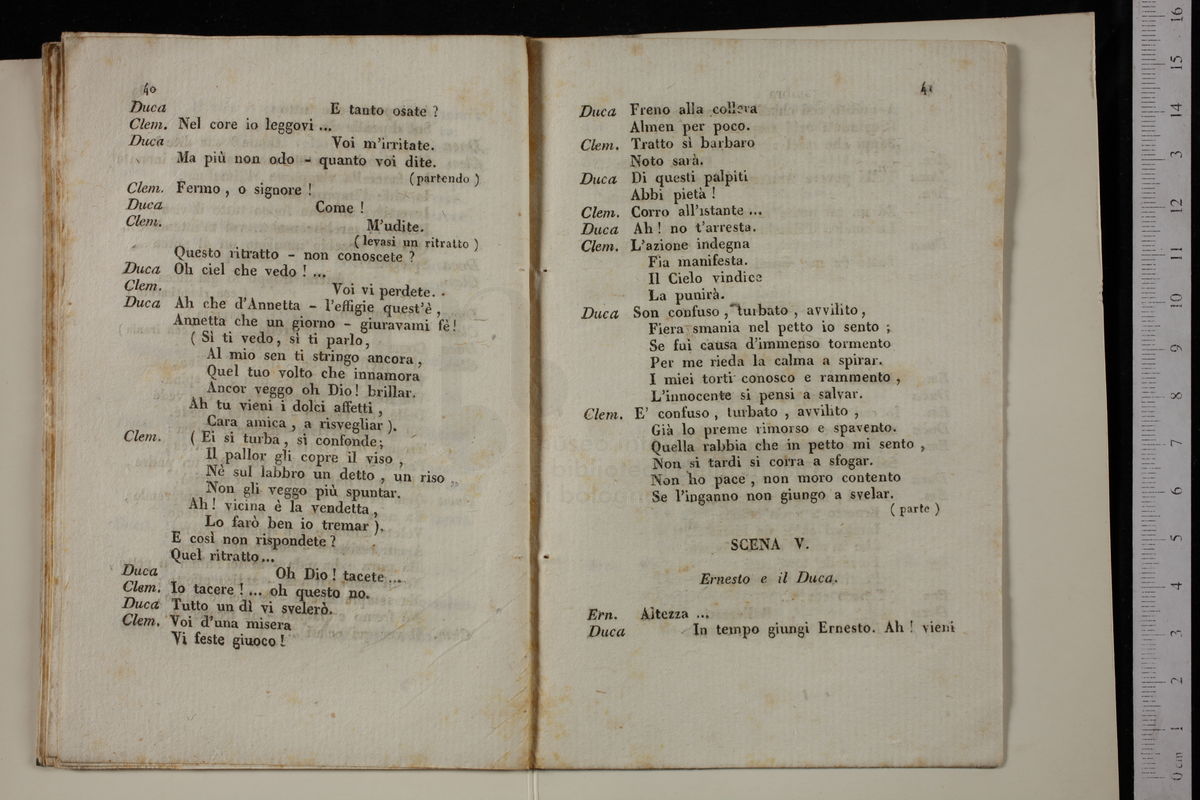 40
Duca E tanto osate ?
Clem. Nel core io leggovi ...
Duca Voi m'irritate.
Ma più non odo - quanto voi dite.
(partendo)
Clem. Fermo , o signore !
Duca Come !
Clem. M'udite.
( levasi un ritratto )
Questo ritratto - non conoscete ?
Duca Oh ciel che vedo ! ...
Clem. Voi vi perdete. .
Duca Ah che d'Annetta - l'effigie quest'è ,
Annetta che un giorno - giuravami fè !
( Sì ti vedo , sì ti parlo ,
Al mio sen ti stringo ancora ,
Quel tuo volto che innamora
Ancor veggo oh Dio ! brillar.
Ah tu vieni i dolci affetti ,
Cara amica , a risvegliar ).
Clem. ( Ei si turba , si confonde ;
Il pallor gli copre il viso ,
Nè sul labbro un detto , un riso
Non gli veggo più spuntar.
Ah ! vicina è la vendetta ,
Lo farò ben io tremar ).
E così non rispondete ?
Quel ritratto ...
Duca Oh Dio ! tacete ...
Clem. Io tacere ! ... oh questo no.
Duca Tutto un dì vi svelerò.
Clem. Voi d'una misera
Vi feste giuoco !
41
Duca Freno alla collera
Almen per poco.
Clem. Tratto sì barbaro
Noto sarà.
Duca Di questi palpiti
Abbi pietà !
Clem. Corro all'istante ...
Duca Ah ! no t'arresta.
Clem. L'azione indegna
Fia manifesta.
Il Cielo vindice
La punirà.
Duca Son confuso , turbato , avvilito ,
Fiera smania nel petto io sento ;
Se fui causa d'immenso tormento
Per me rieda la calma a spirar.
I miei torti conosco e rammento ,
L'innocente si pensi a salvar.
Clem. E' confuso , turbato , avvilito ,
Già lo preme rimorso e spavento.
Quella rabbia che in petto mi sento ,
Non si tardi si corra a sfogar.
Non ho pace , non moro contento
Se l'inganno non giungo a svelar.
( parte )
SCENA V.
Ernesto e il Duca.
Ern. Altezza ...
Duca In tempo giungi Ernesto. Ah ! vieni
0 cm 1 2 3 4 5 6 7 8 9 10 11 12 13 14 15 16